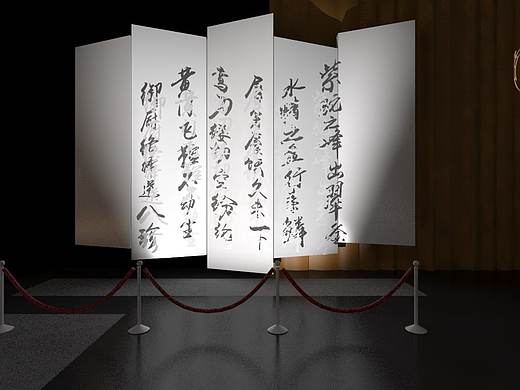 紫驼之峰出翠釜
水精之盘行素鳞
犀箸厌饫久未下
鸾刀缕切空纷纶
黄门飞鞚不动尘
御厨络绎送八珍